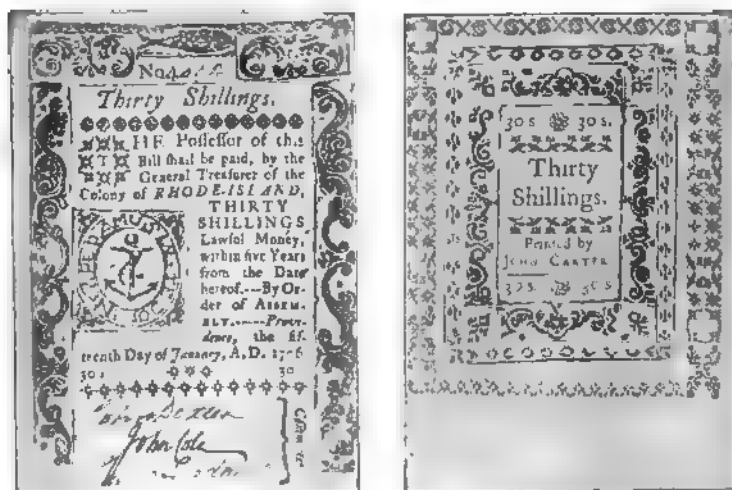 No
Thirty Shillings.
THE Poſſeſſor of this
Bill ſhall be paid, by the
General Treaſurer of the
Colony of RHODE-ISLAND,
THIRTY
SHILLINGS
Lawful Money,
within five Years
from the Date
hereof.---By Or-
der of ASSEM-
BLY.----Provi-
dence, the fif-
teenth Day of January, A.D. 1776
30s 30
John Cole
30s. 30s.
Thirty
Shillings.
Printed by
JOHN CARTER
30s. 30s